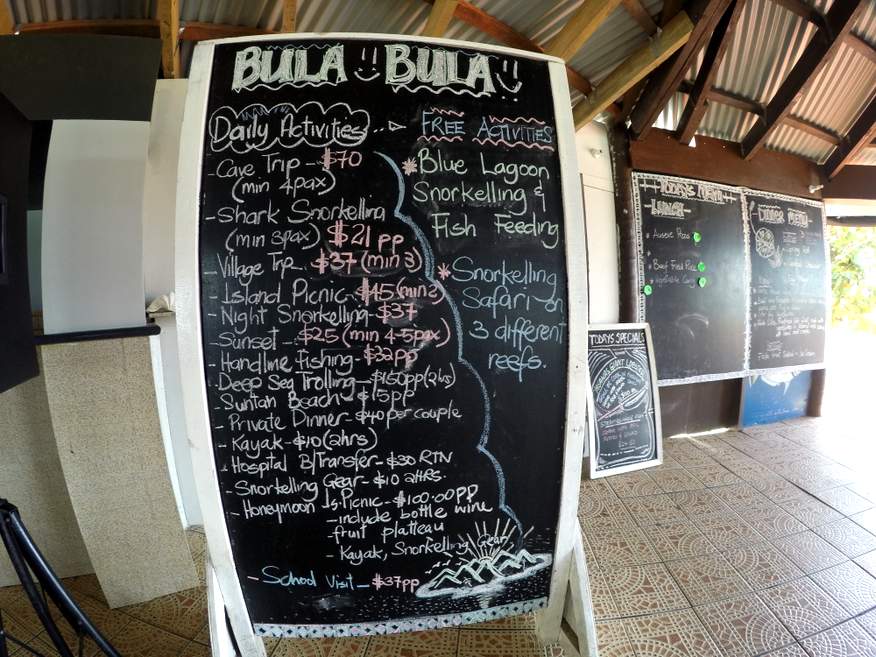 BULA BULA
Daily Activities
- Cave Trip - $70
(min 4pax)
- Shark Snorkelling
(min 3pax) $21 pp
- Village Trp - $37 (min 3)
- Island Picnic - $45 (min 2)
- Night Snorkelling - $37
- Sunset - $25 (min 4-5pax)
- Handline Fishing - $32pp
- Deep Sea Trolling - $150pp (2hrs)
- Suntan Beach - $15pp
- Private Dinner - $40 per couple
- Kayak - $10 (2hrs)
- Hospital B/Transfer - $30 RTN
- Snorkelling Gear - $10 2HRS.
- Honeymoon Is. Picnic - $100.00PP
- include bottle wine
fruit platteau
- Kayak, Snorkelling Gear
- School Visit - $37pp
FREE ACTIVITIES
* Blue Lagoon
Snorkelling &
Fish Feeding
* Snorkelling
Safari on
3 different
reefs.
TODAYS SPECIALS
TODAYS MENU
- LUNCH -
* Aussie Pizza
* Beef Fried Rice
* Vegetable Curry
DINNER MENU